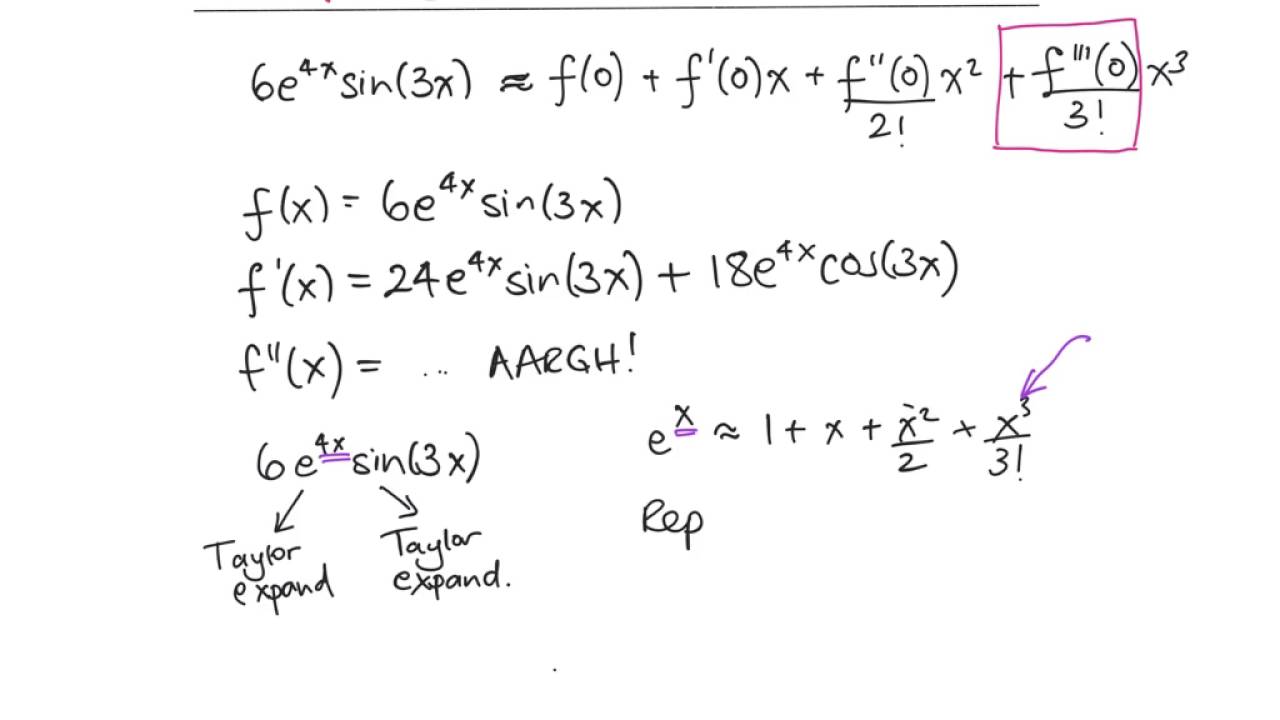 6e^{4x} sin(3x) ≈ f(0) + f'(0)x + \frac{f''(0)}{2!} x² + \frac{f'''(0)}{3!} x³
f(x) = 6e^{4x} sin(3x)
f'(x) = 24e^{4x} sin(3x) + 18e^{4x} cos(3x)
f''(x) = ... AARGH!
6e^{4x} sin(3x)
Taylor expand
Taylor expand.
e^{x} ≈ 1 + x + \frac{x²}{2} + \frac{x³}{3!}
Rep